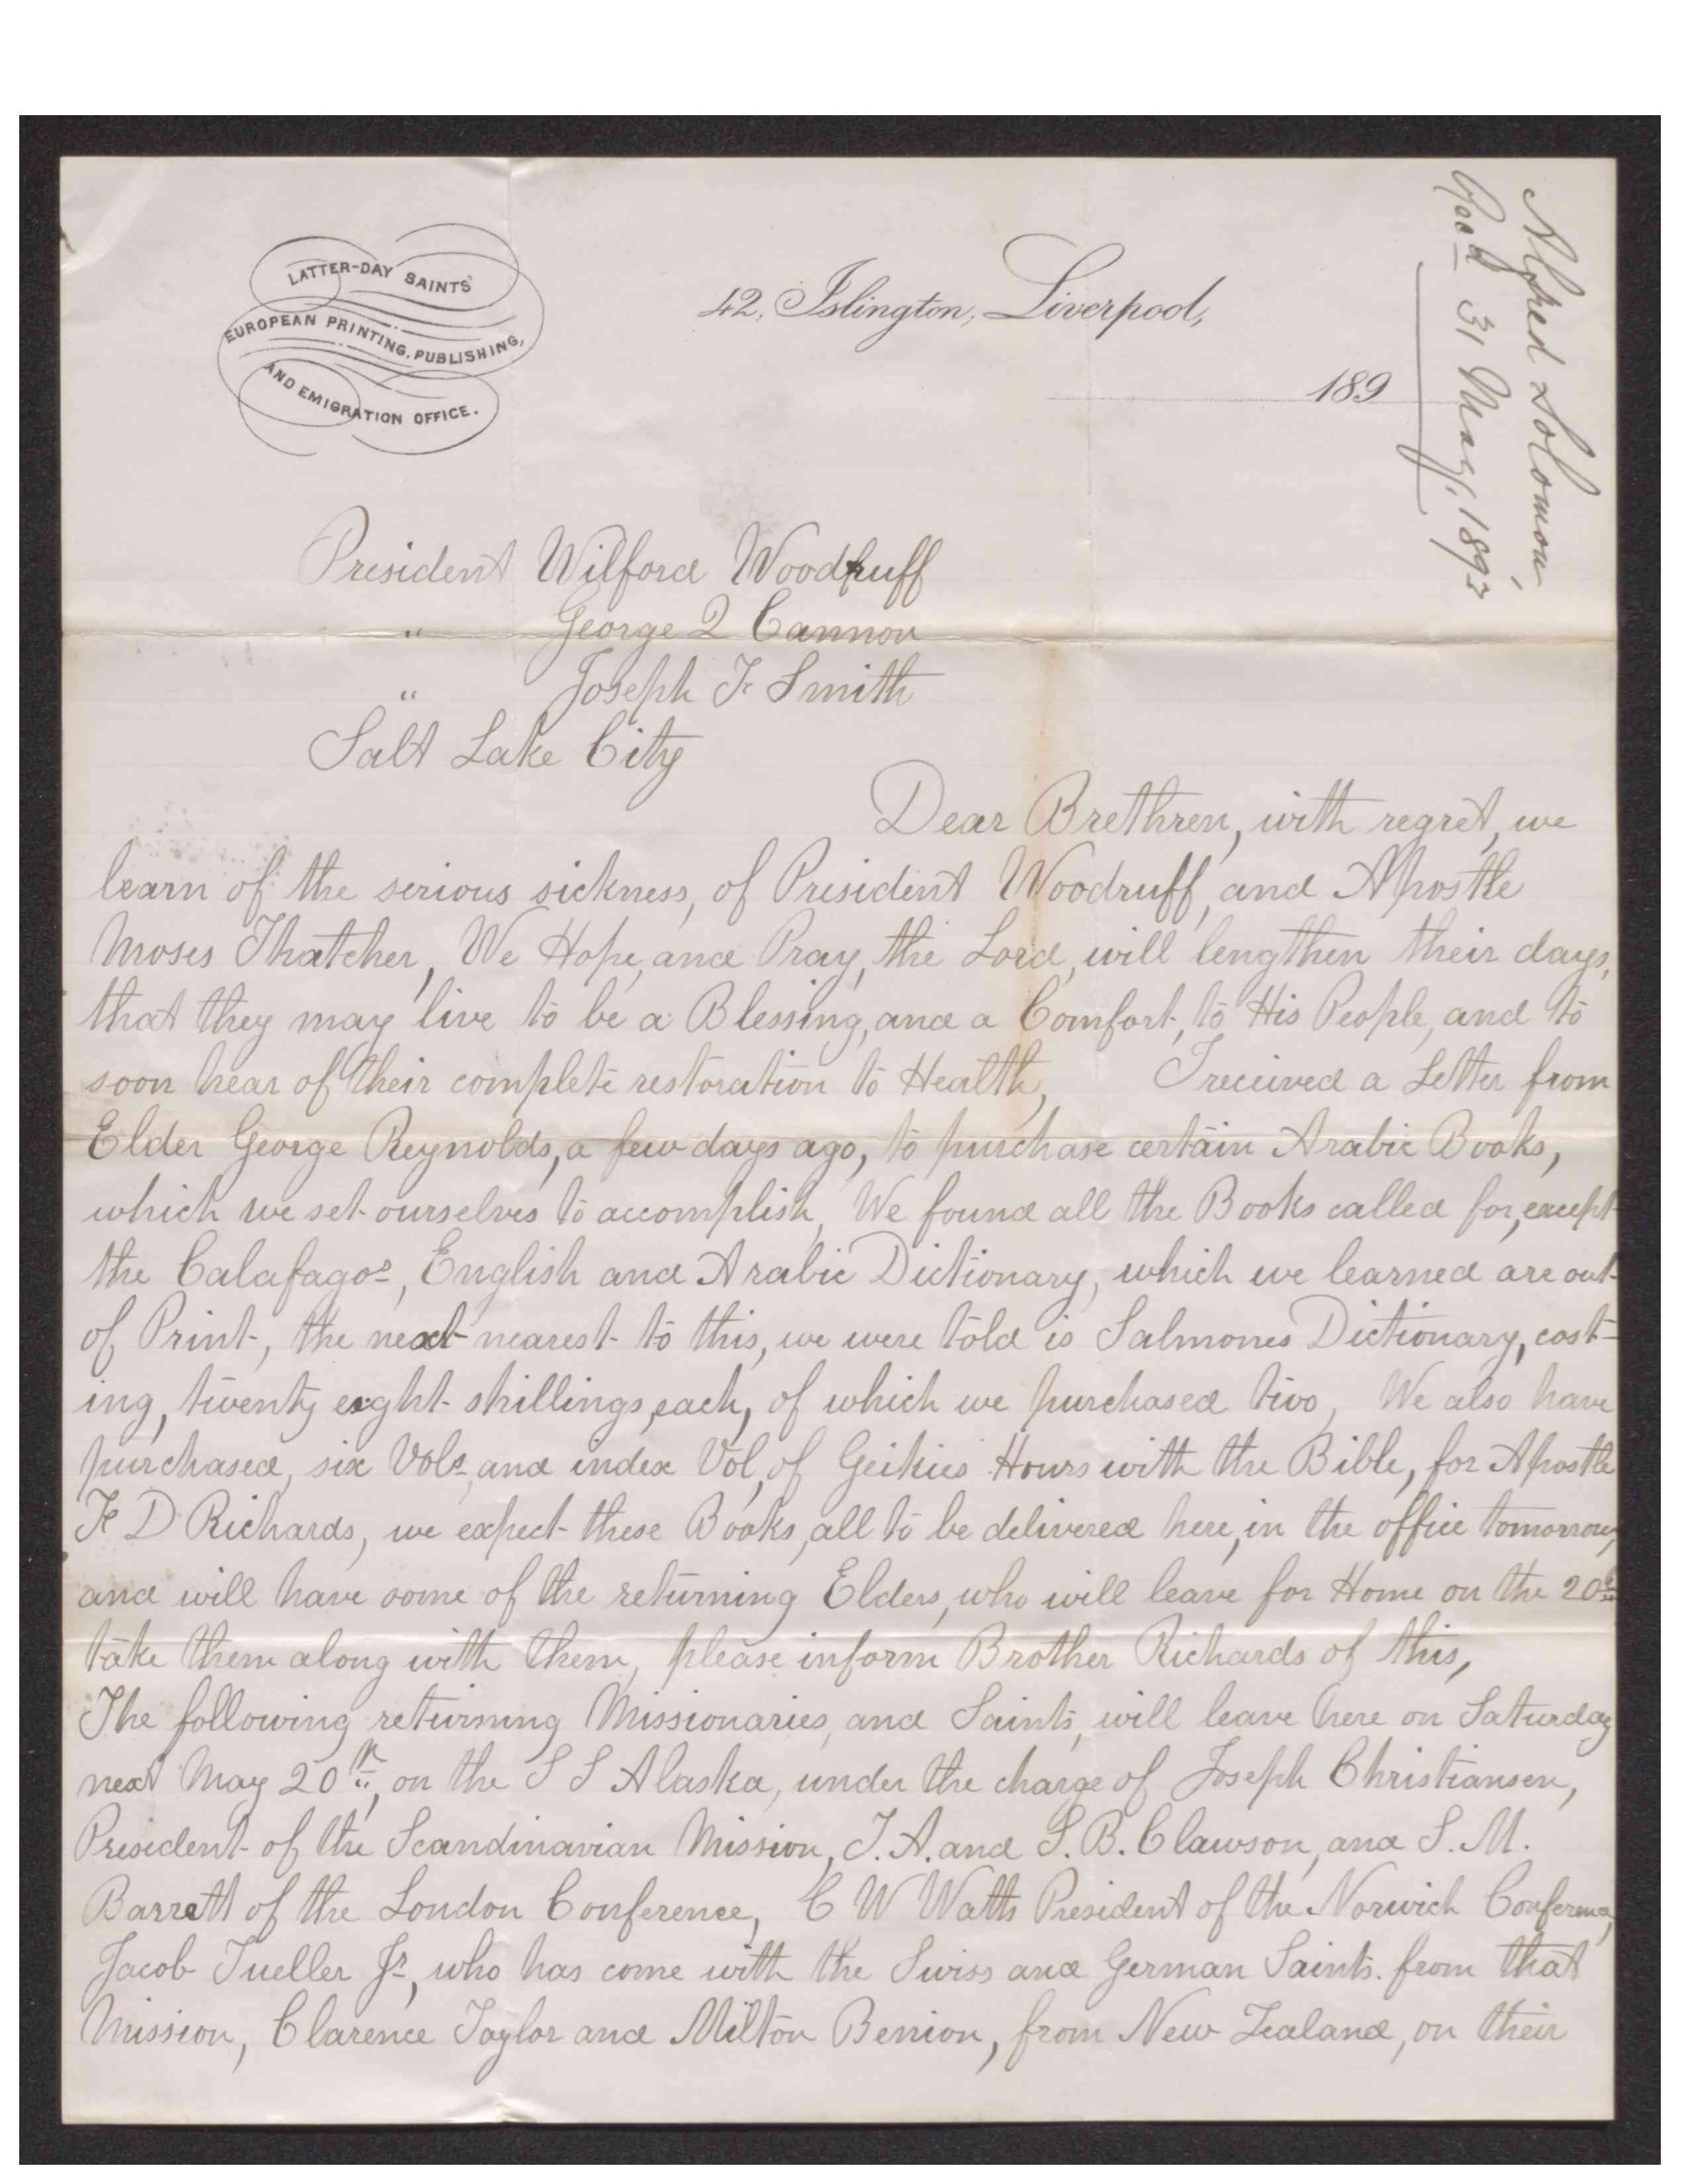 LATTER-DAY SAINTS'
EUROPEAN PRINTING, PUBLISHING,
AND EMIGRATION OFFICE.
42, Islington, Liverpool,
189
Alfred Solomon,
Recd 31 May, 1893
President Wilford Woodruff
" George Q Cannon
" Joseph F Smith
Salt Lake City
Dear Brethren, with regret, we
learn of the serious sickness, of President Woodruff, and Apostle
Moses Thatcher, We Hope, and Pray, the Lord, will lengthen their days,
that they may live to be a Blessing, and a Comfort, to His People, and to
soon hear of their complete restoration to Health, I received a Letter from
Elder George Reynolds, a few days ago, to purchase certain Arabic Books,
which we set ourselves to accomplish, We found all the Books called for, except
the Calafagos, English and Arabic Dictionary, which we learned are out
of Print, the next nearest to this, we were told is Salmones Dictionary, cost-
ing, twenty eight shillings, each, of which we purchased two, We also have
purchased, six Vols, and index Vol, of Geikies Hours with the Bible, for Apostle
F D Richards, we expect these Books, all to be delivered here, in the office tomorrow,
and will have some of the returning Elders, who will leave for Home on the 20th
take them along with them, please inform Brother Richards of this,
The following returning Missionaries, and Saints, will leave here on Saturday
next May 20th, on the S S Alaska, under the charge of Joseph Christiansen,
President of the Scandinavian Mission, I. A. and S. B. Clawson, and S. M.
Barratt of the London Conference, C W Watts President of the Norwich Conference,
Jacob Tueller Jr, who has come with the Swiss and German Saints from that
Mission, Clarence Taylor and Milton Benion, from New Zealand, on their